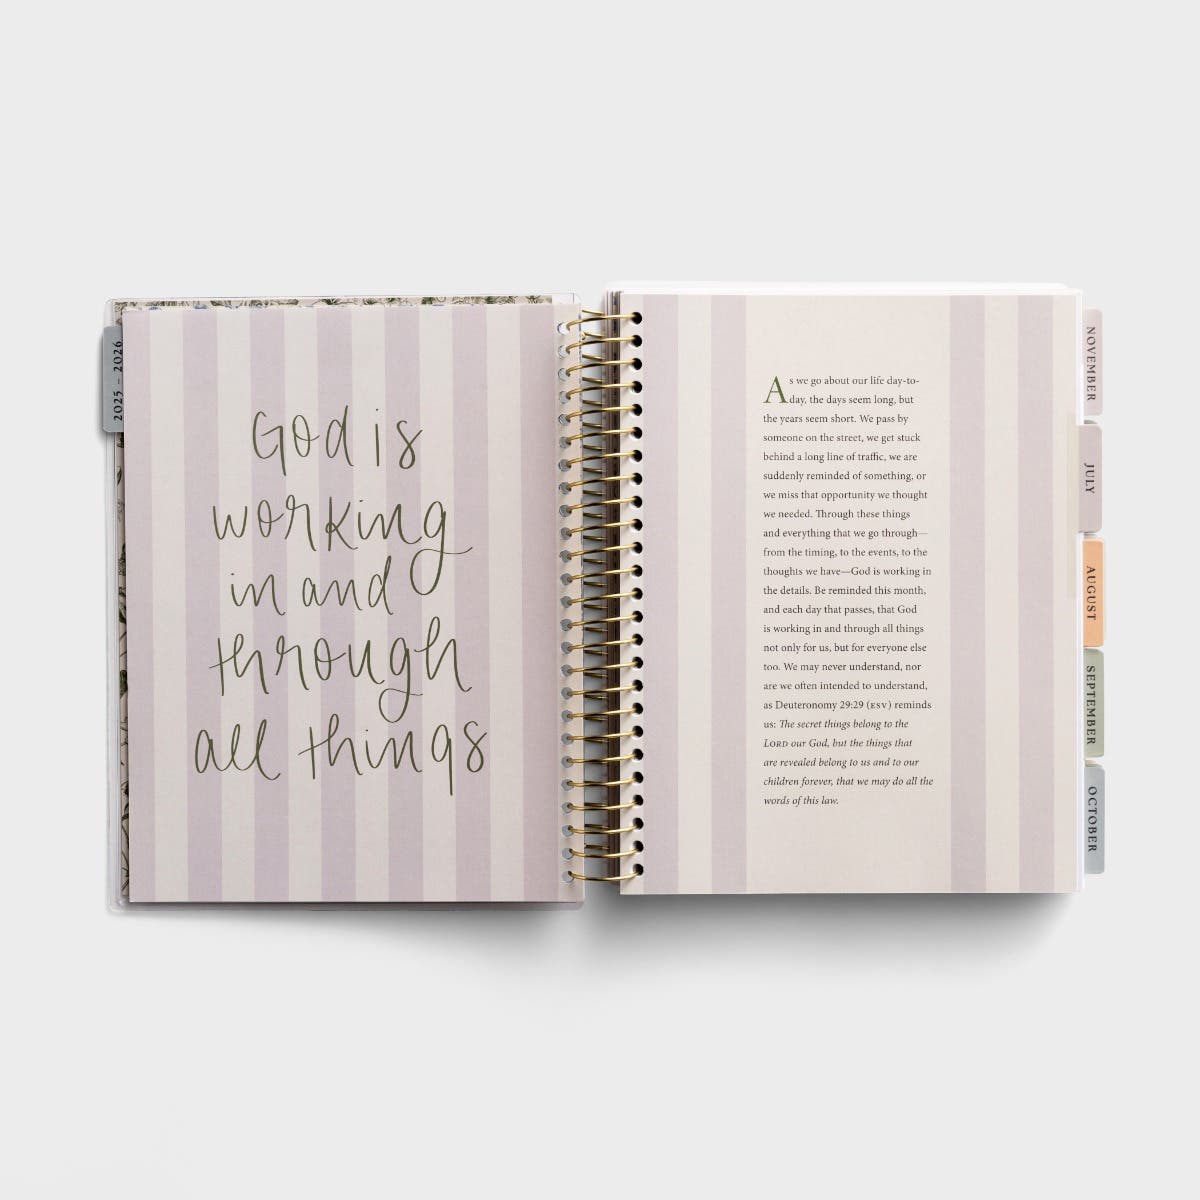 2025 – 2026
God is
working
in and
through
all things
As we go about our life day-to-
day, the days seem long, but
the years seem short. We pass by
someone on the street, we get stuck
behind a long line of traffic, we are
suddenly reminded of something, or
we miss that opportunity we thought
we needed. Through these things
and everything that we go through—
from the timing, to the events, to the
thoughts we have—God is working in
the details. Be reminded this month,
and each day that passes, that God
is working in and through all things
not only for us, but for everyone else
too. We may never understand, nor
are we often intended to understand,
as Deuteronomy 29:29 (ESV) reminds
us: The secret things belong to the
LORD our God, but the things that
are revealed belong to us and to our
children forever, that we may do all the
words of this law.
NOVEMBER
JULY
AUGUST
SEPTEMBER
OCTOBER